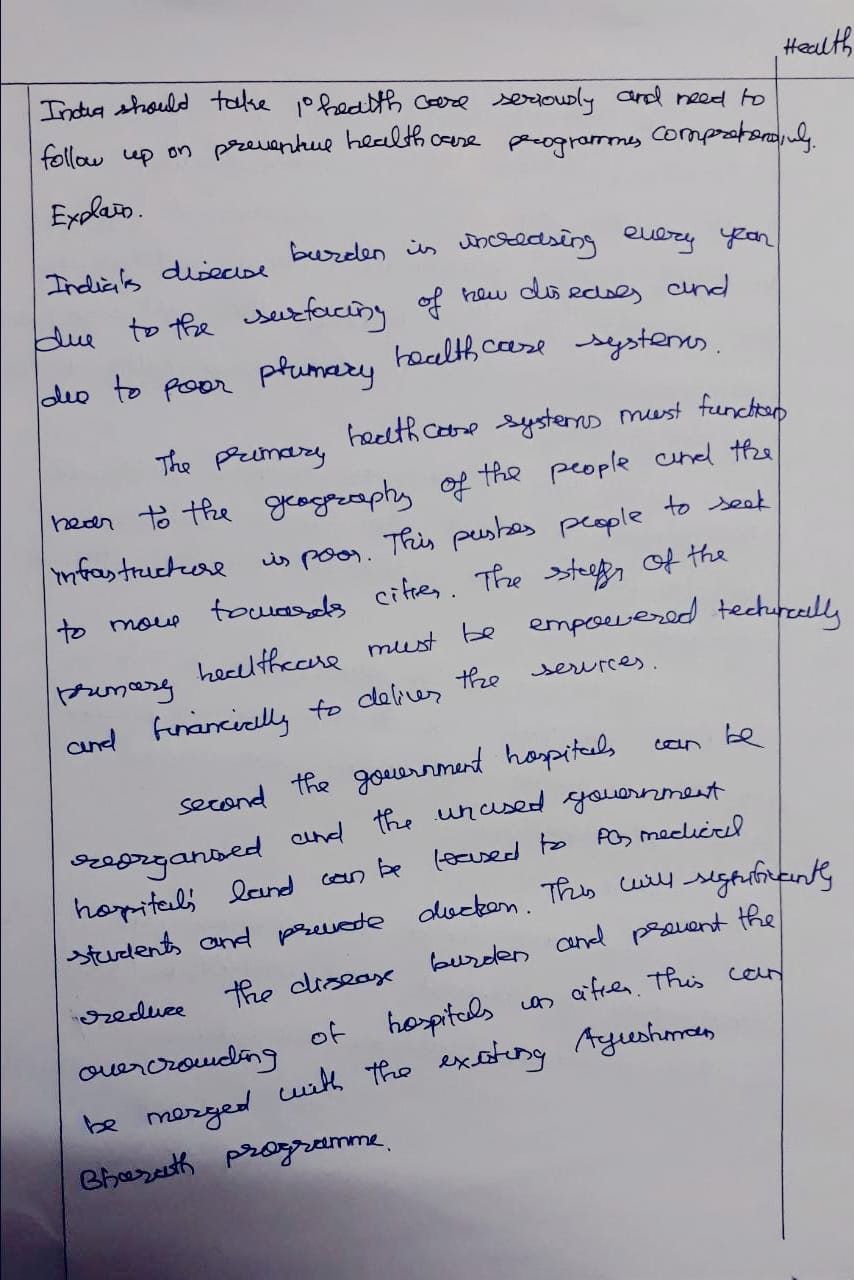 Health
India should take 1° health care seriously and need to
follow up on preventive health care programmes comprehendingly.
Explain.
India's disease burden is increasing every year
due to the surfacing of new diseases and
due to poor primary health care systems.
The primary health care systems must function
near to the geography of the people and the
infrastructure is poor. This pushes people to seek
to move towards cities. The staffs of the
primary healthcare must be empowered technically
and financially to deliver the services.
second the government hospitals can be
reorganised and the unused government
hospitals' land can be leased to PG medical
students and private doctors. This will significantly
reduce the disease burden and prevent the
overcrowding of hospitals in cities. This can
be merged with the existing Ayushman
Bharath programme.